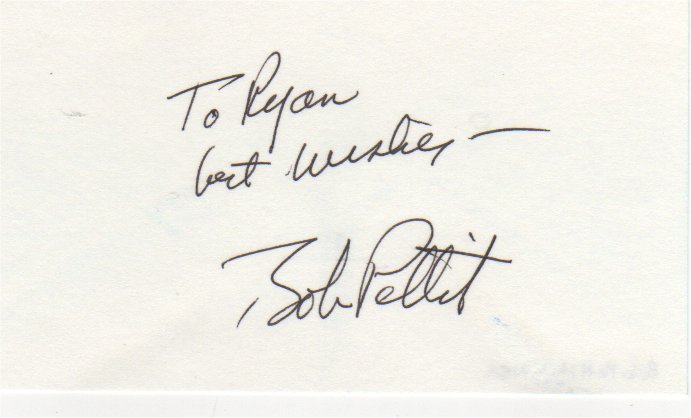 To Ryan
best wishes —
Bob Pettit